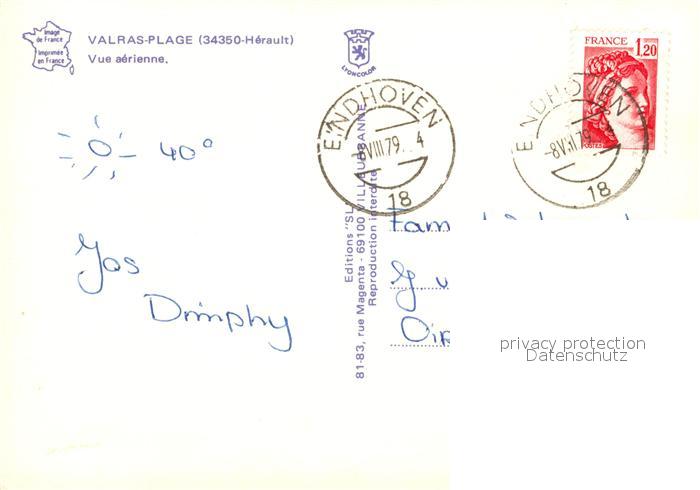 Image
de France
Imprimée
en France
VALRAS-PLAGE (34350-Hérault)
Vue aérienne.
LYONCOLOR
FRANCE 1,20
POSTES
EINDHOVEN
VIII.79. 4
18
EINDHOVEN
-8.VIII.79
18
40°
Jos
Dimphy
Editions "SL
81-83, rue Magenta - 69100 VILLEURBANNE
Reproduction interdite
Fam
privacy protection
Datenschutz